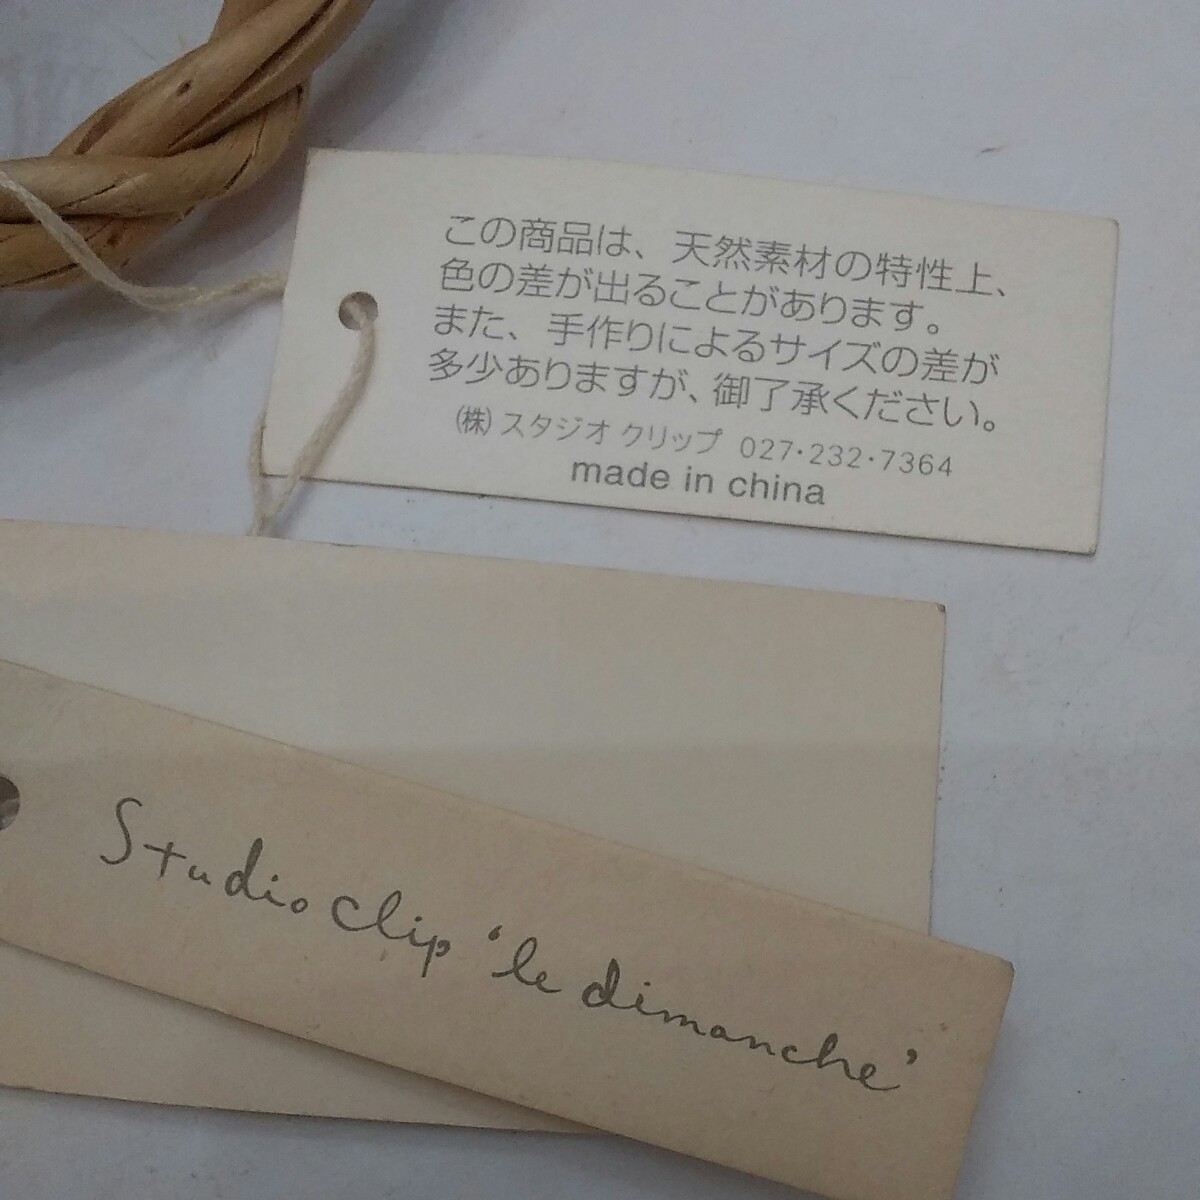 この商品は、天然素材の特性上、
色の差が出ることがあります。
また、手作りによるサイズの差が
多少ありますが、御了承ください。
㈱ スタジオ クリップ 027・232・7364
made in china
Studio Clip 'le dimanche'